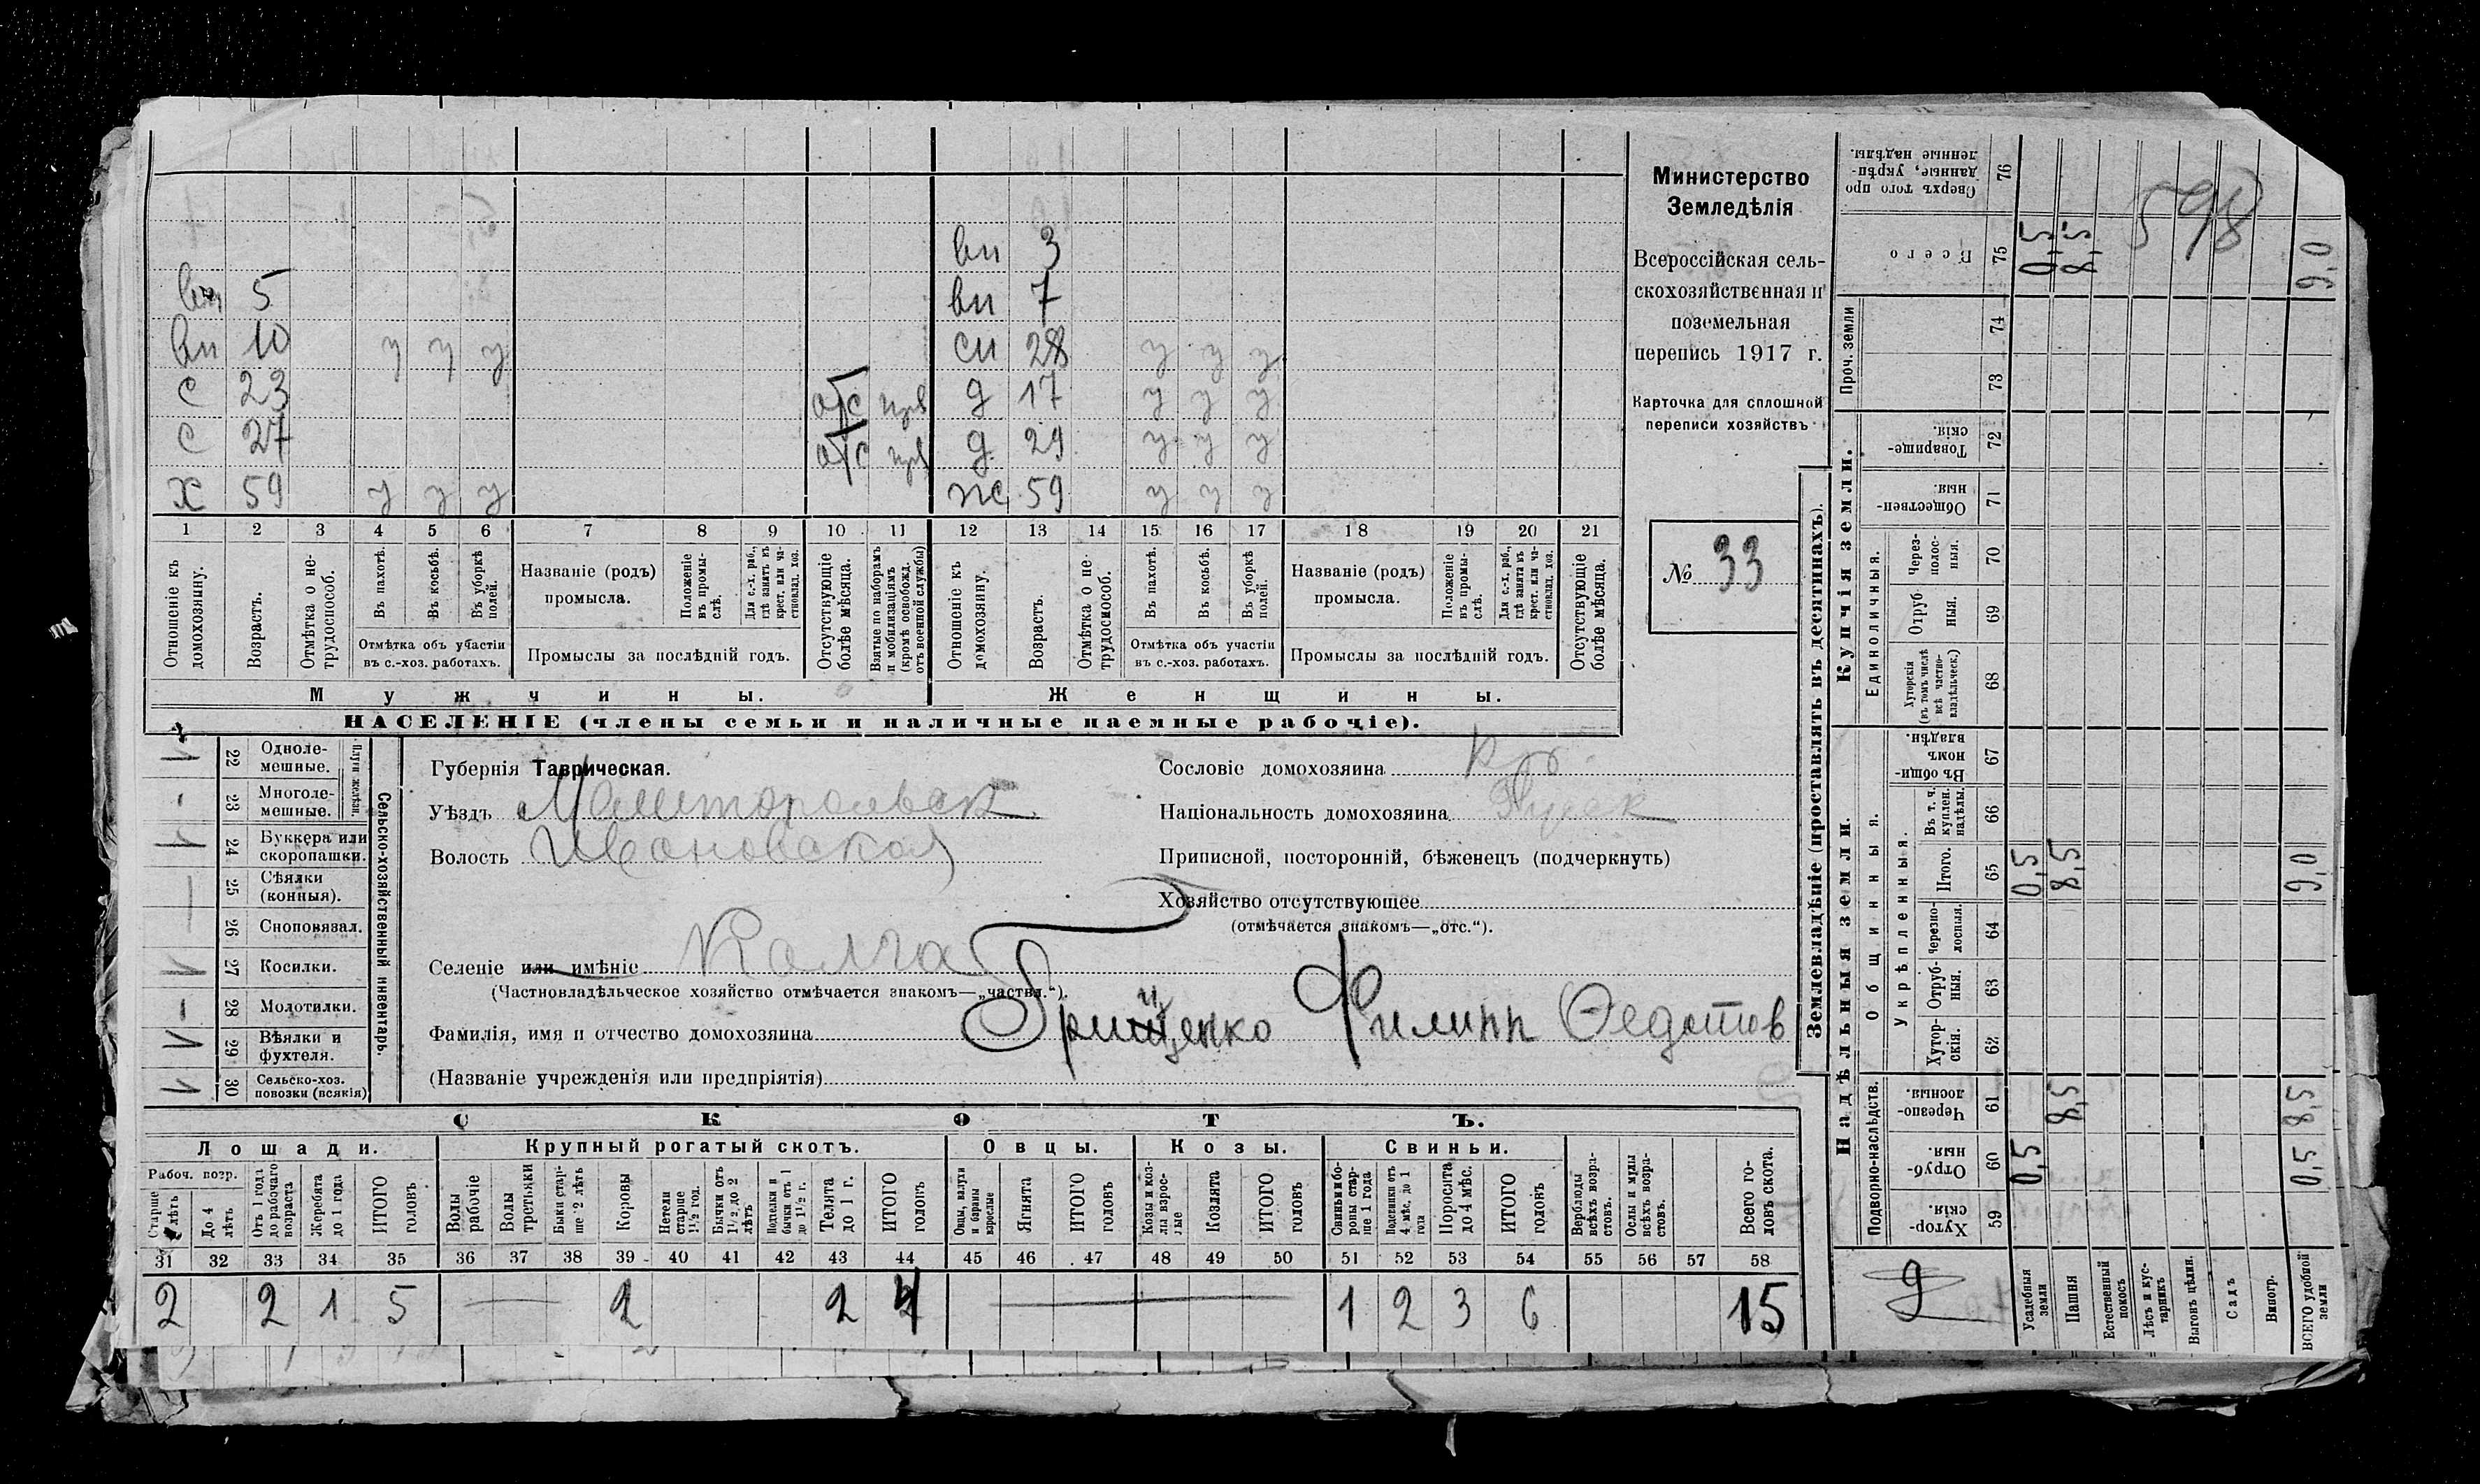 вн 3
вн 5 вн 7
вн 10 у у у сн 28 у у у
с 23 отс прв д 17 у у у
с 27 отс прв д 29 у у у
х 59 у у у ж 59 у у у
1 2 3 4 5 6 7 8 9 10 11 12 13 14 15 16 17 18 19 20 21
Отношеніе къ домохозяину.
Возрастъ.
Отмѣтка о не-
трудоспособ.
Въ пахотѣ.
Въ косьбѣ.
Въ уборкѣ полей.
Отмѣтка объ участіи
въ с.-хоз. работахъ.
Названіе (родъ)
промысла.
Положеніе въ промы-
слѣ.
Для с.-х. раб., гдѣ занятъ въ крест. или ча-
стновлад. хоз.
Промыслы за послѣдній годъ.
Отсутствующіе болѣе мѣсяца.
Взятые по наборамъ и мобилизаціямъ (кромѣ освобожд. отъ военной службы)
Отношеніе къ домохозяину.
Возрастъ.
Отмѣтка о не-
трудоспособ.
Въ пахотѣ.
Въ косьбѣ.
Въ уборкѣ полей.
Отмѣтка объ участіи
въ с.-хоз. работахъ.
Названіе (родъ)
промысла.
Положеніе въ промы-
слѣ.
Для с.-х. раб., гдѣ занята въ крест. или ча-
стновлад. хоз.
Промыслы за послѣдній годъ.
Отсутствующіе болѣе мѣсяца.
Мужчины.
Женщины.
НАСЕЛЕНІЕ (члены семьи и наличные наемные рабочіе).
Министерство
Земледѣлія
Всероссійская сель-
скохозяйственная и
поземельная
перепись 1917 г.
Карточка для сплошной
переписи хозяйствъ
№ 33
22 Одноле-
мешные.
23 Многоле-
мешные.
Плуги желѣзн.
24 Буккера или
скоропашки.
25 Сѣялки
(конныя).
26 Сноповязал.
27 Косилки.
28 Молотилки.
29 Вѣялки и
фухтеля.
30 Сельско-хоз.
повозки (всякія)
Сельско-хозяйственный инвентарь.
Губернія Таврическая.
Уѣздъ Мелитопольск
Волость Ивановская
Селеніе или имѣніе Калга
(Частновладѣльческое хозяйство отмѣчается знакомъ—„частвл.“).
Фамилія, имя и отчество домохозяина Грищенко Филипп Федотов
(Названіе учрежденія или предпріятія)
Сословіе домохозяина кр
Національность домохозяина Русск
Приписной, посторонній, бѣженецъ (подчеркнуть)
Хозяйство отсутствующее
(отмѣчается знакомъ—„отс.“).
СКОТЪ.
Лошади.
Крупный рогатый скотъ.
Овцы.
Козы.
Свиньи.
Рабоч. возр.
Старше 4 лѣтъ
До 4 лѣтъ
Отъ 1 года до рабочаго возраста
Жеребята до 1 года
ИТОГО головъ
Волы рабочіе
Волы третьяки
Быки стар-
ше 2 лѣтъ
Коровы
Нетели старше 1½ год.
Бычки отъ 1½ до 2 лѣтъ
Подтелки и бычки отъ 1 до 1½ г.
Телята до 1 г.
ИТОГО головъ
Овцы, валухи и бараны взрослые
Ягнята
ИТОГО головъ
Козы и коз-
лы взрос-
лые
Козлята
ИТОГО головъ
Свиньи и бо-
ровы стар-
ше 1 года
Подсвинки отъ 4 мѣс. до 1 года
Поросята до 4 мѣс.
ИТОГО головъ
Верблюды всѣхъ возра-
стовъ.
Ослы и мулы всѣхъ возра-
стовъ.
Всего го-
ловъ скота.
31 32 33 34 35 36 37 38 39 40 41 42 43 44 45 46 47 48 49 50 51 52 53 54 55 56 57 58
2 2 1 5 2 2 4 1 2 3 6 15
Землевладѣніе (проставлять въ десятинахъ).
Надѣльныя земли.
Купчія земли.
Проч. земли
Подворно-наслѣдств.
Общинныя.
Укрѣпленныя.
Единоличныя.
Хутор-
скія. 59
Отруб-
ныя. 60
Черезпо-
лосныя. 61
Хутор-
скія. 62
Отруб-
ныя. 63
Черезпо-
лосныя. 64
Итого. 65
Въ т. ч. куплен. надѣлы. 66
Въ общи-
номъ владѣн. 67
Хуторскія (въ томъ числѣ всѣ частно-
владѣльческ.) 68
Отруб-
ныя. 69
Через-
полос-
ныя. 70
Обществен-
ныя. 71
Товарище-
скія. 72
73
74
Всего 75
Сверхъ того про-
данные, укрѣп-
ленные надѣлы. 76
598
Усадебныя земли 0,5 0,5 0,5
Пашня 8,5 8,5 8,5
Естественный покосъ
Лѣсъ и кус-
тарникъ
Выгонъ цѣлин.
Садъ
Виногр.
ВСЕГО удобной земли 0,5 8,5 9,0 9,0